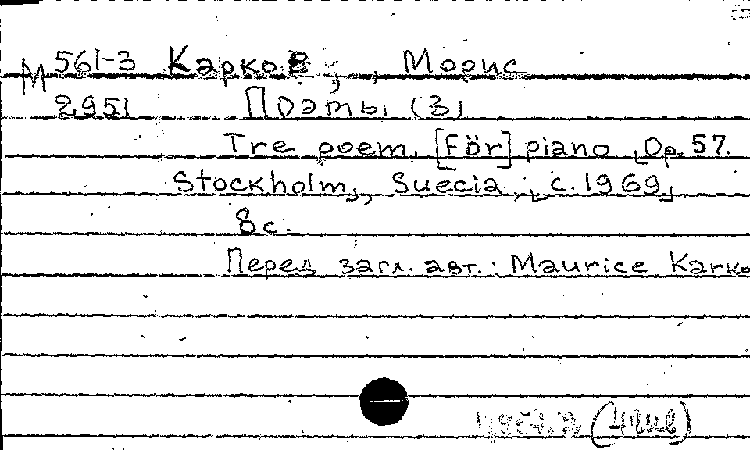 М 561-3 Карков, , Морис
2951 Поэты (3)
Tre poem. [För] piano. Op. 57.
Stockholm, Suecia, c. 1969,
8 с.
Перед загл. авт.: Maurice Karko